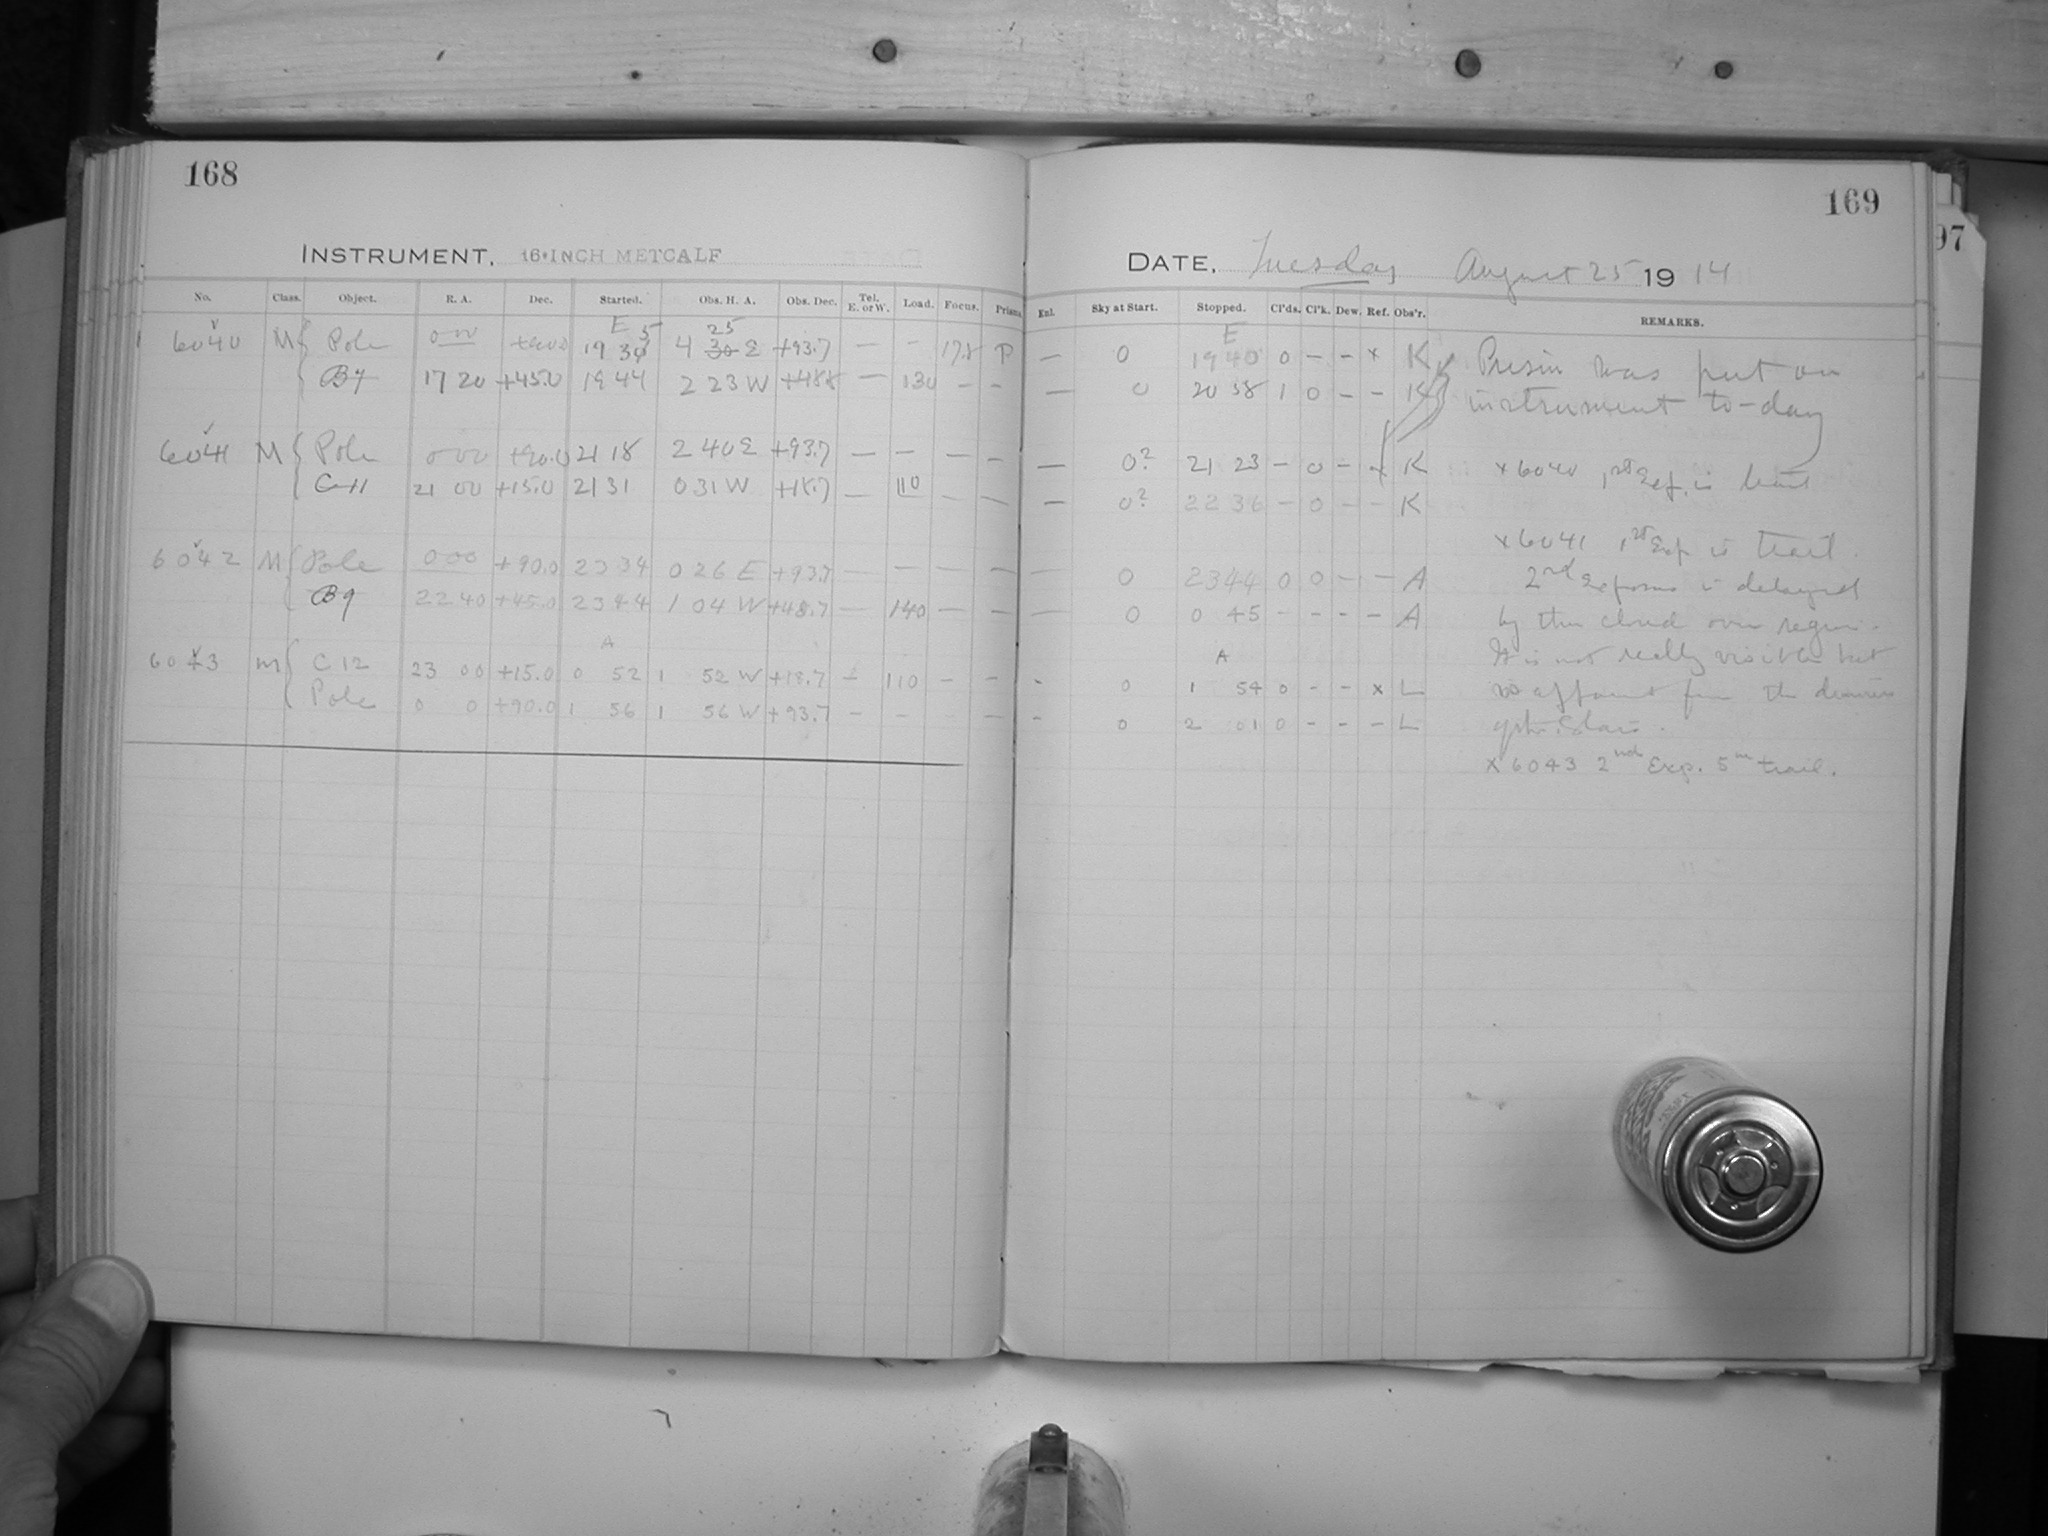 168
INSTRUMENT. 16-INCH METCALF
No. Class. Object. R. A. Dec. Started. Obs. H. A. Obs. Dec. Tel. E. or W. Load. Focus. Prism.
E 5 25
6040 M Pole 0 00 +90.0 19 30 4 30 E +93.7 — — 17.8 P
17 20 +45.0 19 44 2 23 W — 130 — —
6041 M Pole 0 00 +90.0 21 18 2 40 E +93.7 — — — —
C 11 21 00 +15.0 21 31 0 31 W +18.7 — 110 — —
6042 M Pole 0 00 +90.0 23 34 0 26 E +93.7 — — — —
B 9 22 40 +45.0 23 44 1 04 W +48.7 — 140 — —
A
6043 M C 12 23 00 +15.0 0 52 1 52 W +18.7 — 110 — —
Pole 0 0 +90.0 1 56 1 56 W +93.7 — — — —
169
97
DATE. Tuesday August 25 1914
Enl. Sky at Start. Stopped. Cl'ds. Cl'k. Dew. Ref. Obs'r. REMARKS.
E
— 0 19 40 0 – – x K Prism was put on
— 0 20 58 1 0 – – K instrument to-day
— 0? 21 23 – 0 – x K x 6040 1st Exp. is trail
— 0? 22 36 – 0 – – K
x 6041 1st Exp is trail.
— 0 23 44 0 0 – – A 2nd is delayed
— 0 0 45 – – – – A by thin cloud over region.
A It is not really visible but
- 0 1 54 0 – – x L is apparent from the
- 0 2 01 0 – – – L
x 6043 2nd Exp. 5m trail.